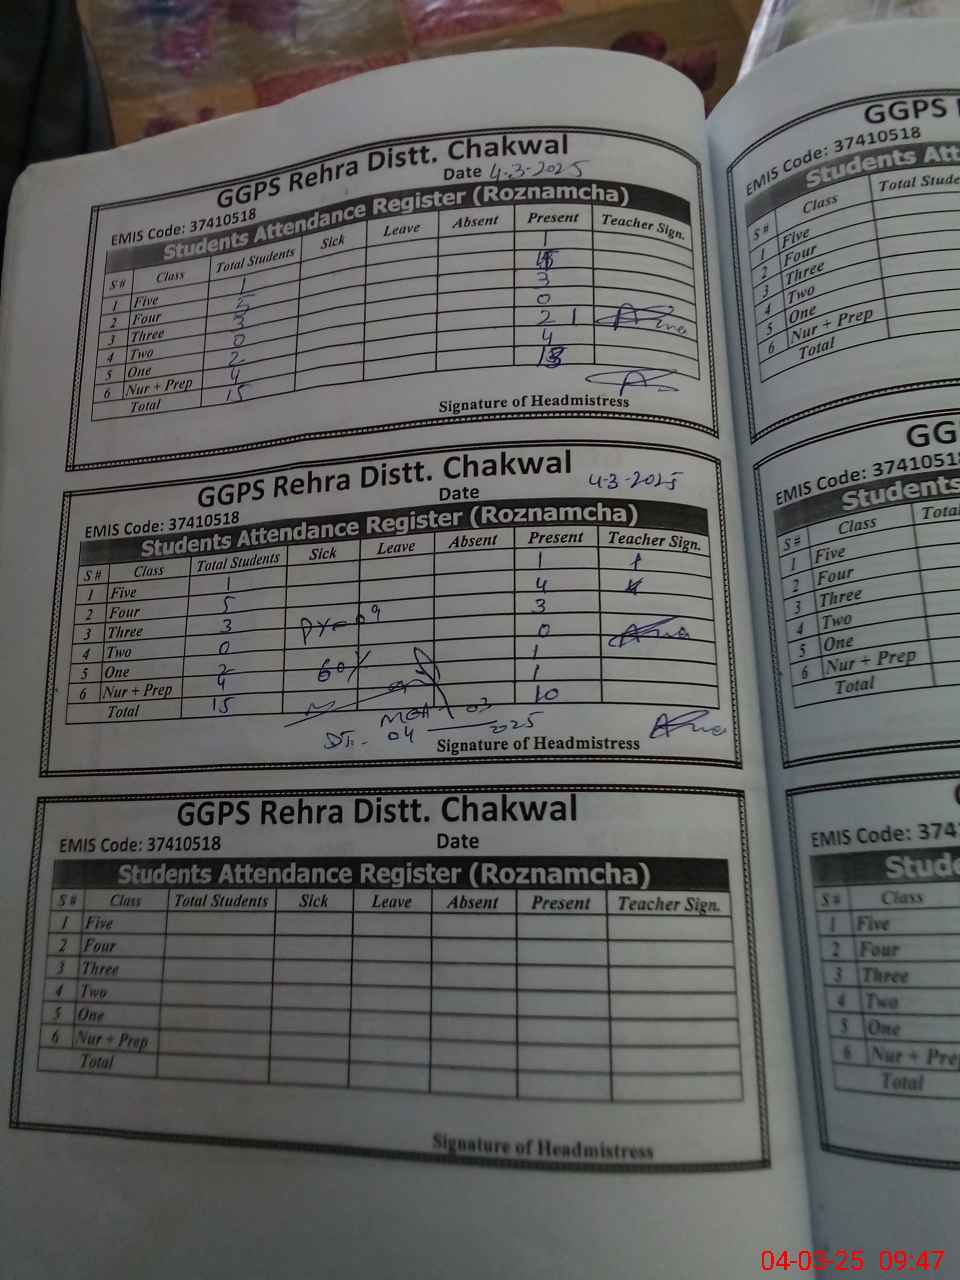 GGPS Rehra Distt. Chakwal
EMIS Code: 37410518 Date 4-3-2025
Students Attendance Register (Roznamcha)
S # Class Total Students Sick Leave Absent Present Teacher Sign.
1 Five 1 1
2 Four 5
3 Three 3 3
4 Two 0 0
5 One 2 2 1
6 Nur + Prep 4 4
Total 15
Signature of Headmistress
GGPS Rehra Distt. Chakwal
EMIS Code: 37410518 Date 4-3-2025
Students Attendance Register (Roznamcha)
S # Class Total Students Sick Leave Absent Present Teacher Sign.
1 Five 1 1
2 Four 5 4
3 Three 3 3
4 Two 0 0
5 One 2 60% 1
6 Nur + Prep 4 1
Total 15 10
MEA
DT:- 04 03 2025
Signature of Headmistress
GGPS Rehra Distt. Chakwal
EMIS Code: 37410518 Date
Students Attendance Register (Roznamcha)
S # Class Total Students Sick Leave Absent Present Teacher Sign.
1 Five
2 Four
3 Three
4 Two
5 One
6 Nur + Prep
Total
Signature of Headmistress
GGPS
EMIS Code: 37410518
Students
S # Class Total
1 Five
2 Four
3 Three
4 Two
5 One
6 Nur + Prep
Total
EMIS Code: 3741051
Students
S # Class Total
1 Five
2 Four
3 Three
4 Two
5 One
6 Nur + Prep
Total
EMIS Code: 374
S # Class
1 Five
2 Four
3 Three
4 Two
5 One
6 Nur + Prep
Total
04-03-25 09:47